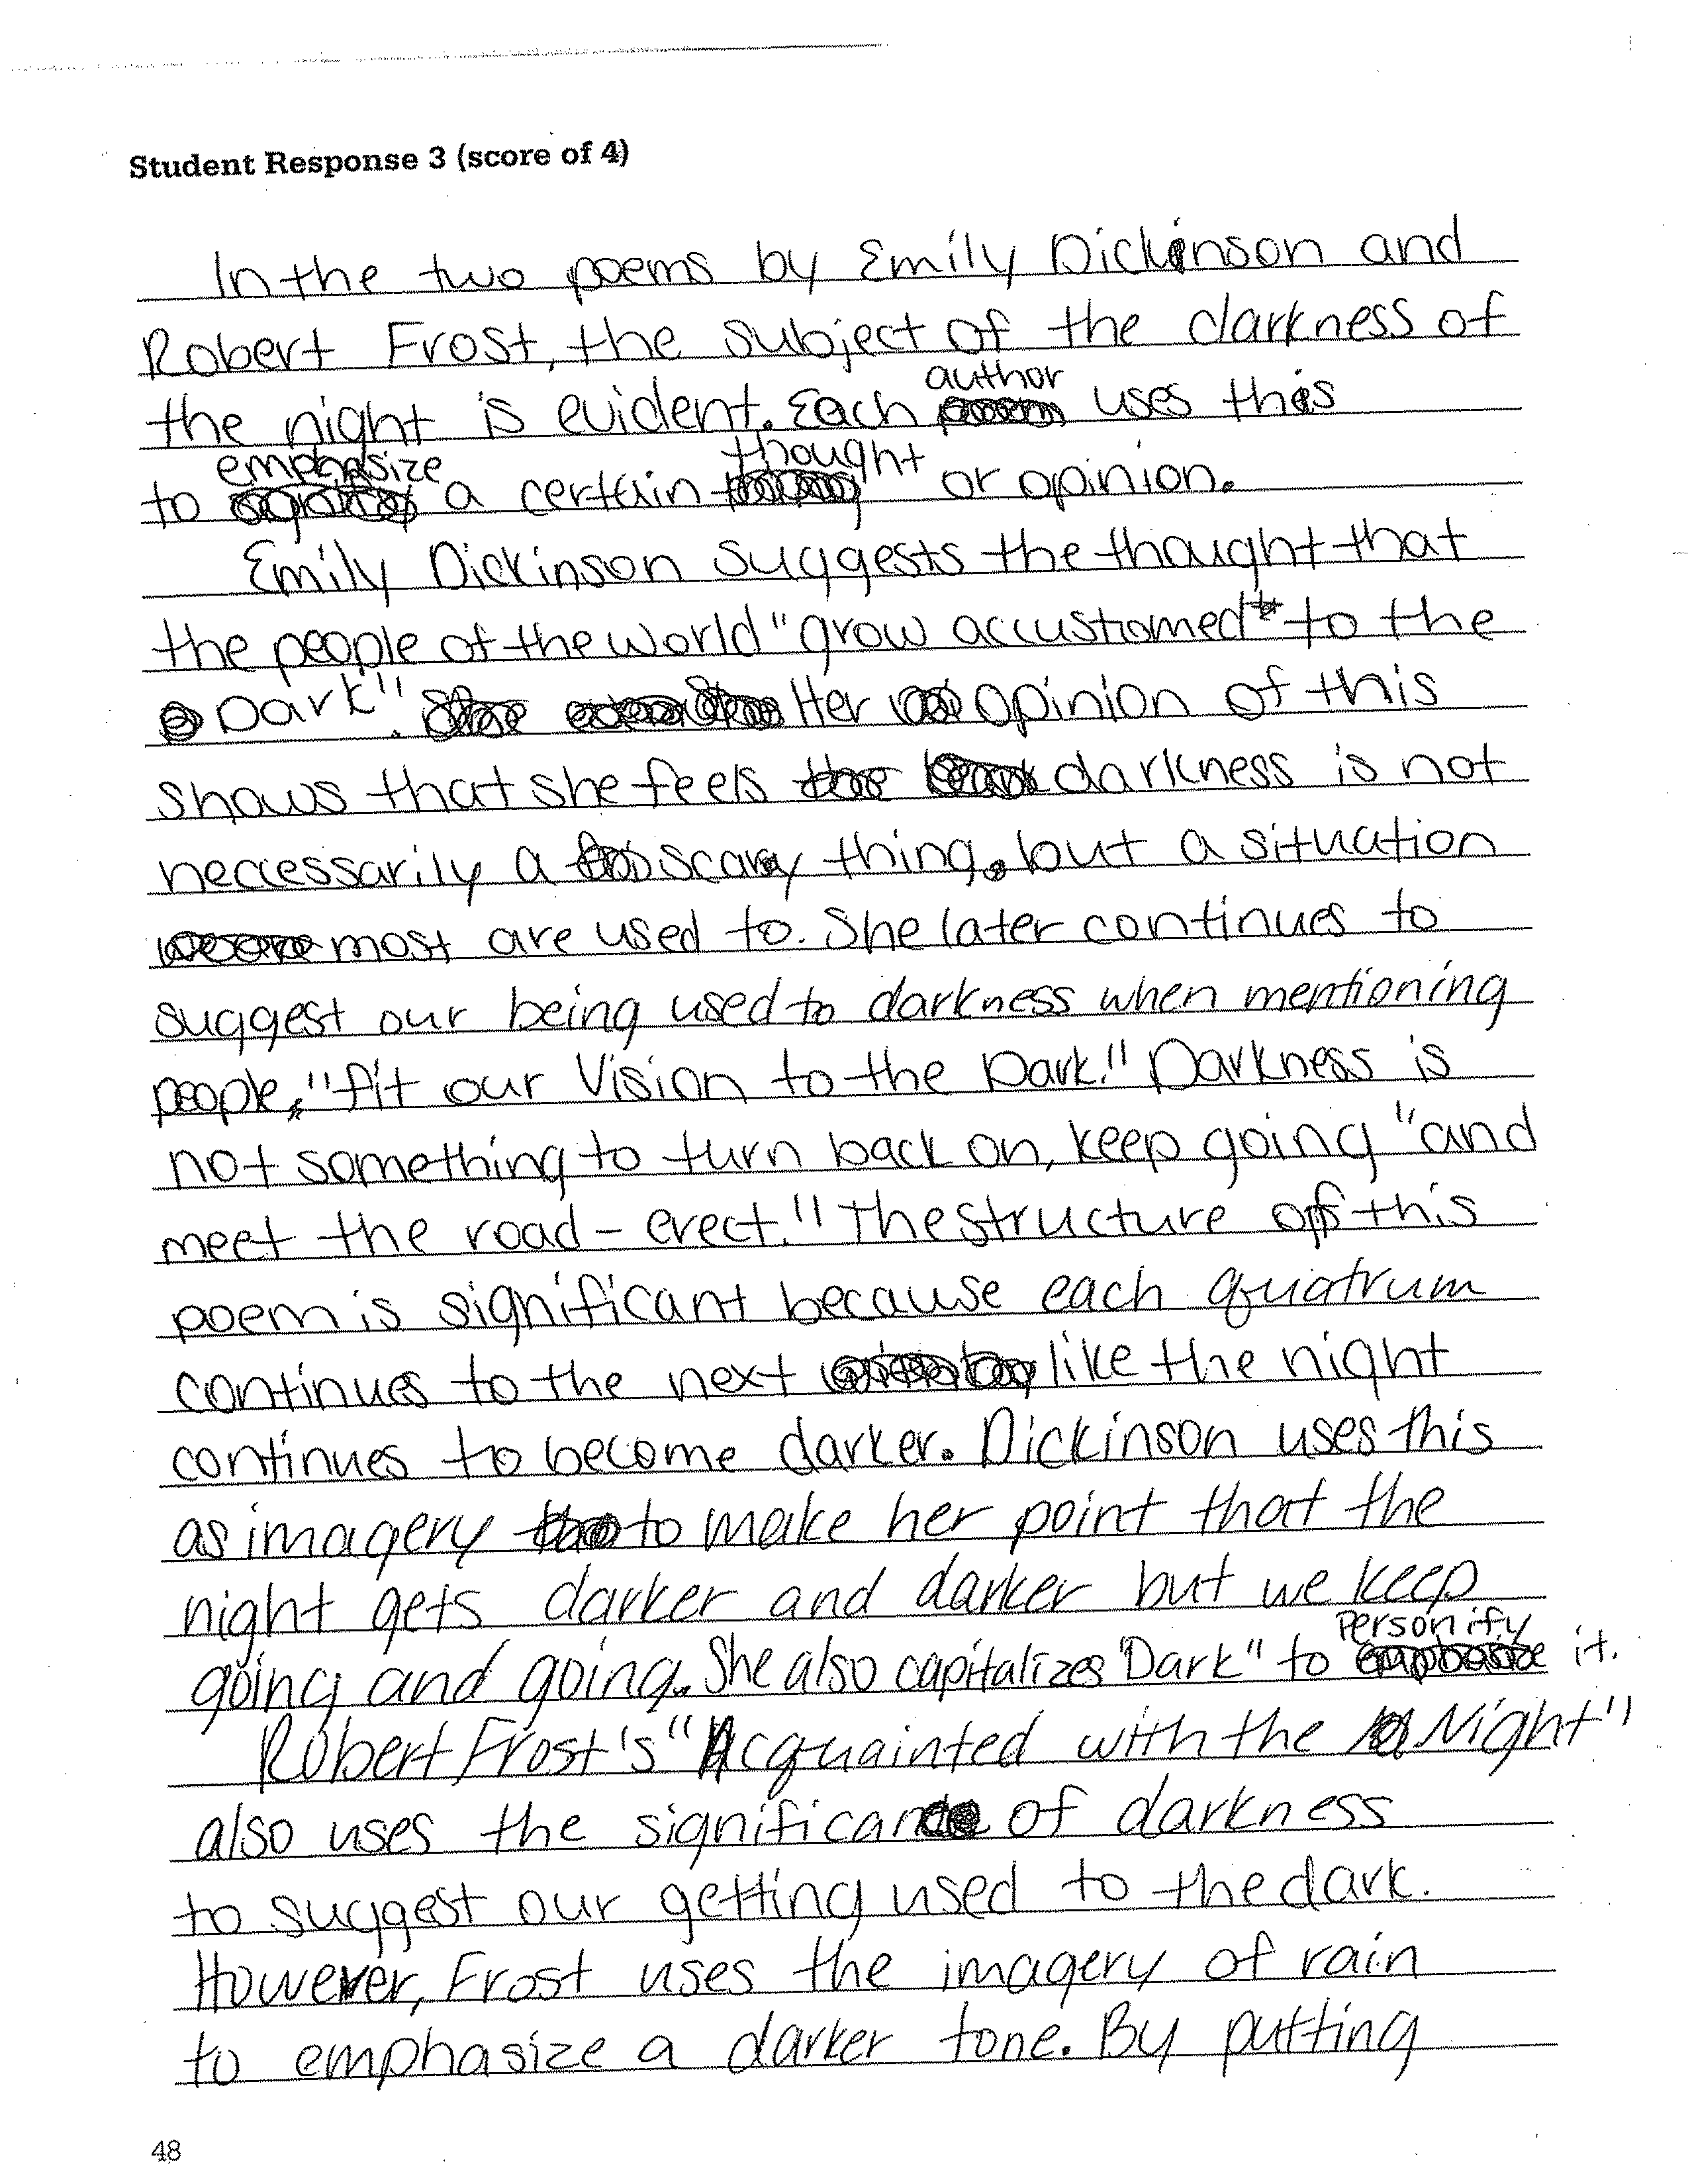 Student Response 3 (score of 4)
In the two poems by Emily Dickinson and
Robert Frost, the subject of the darkness of
author
the night is evident. Each uses this
emphasize thought
to a certain or opinion.
Emily Dickinson suggests the thought that
the people of the world "grow accustomed to the
Dark". Her opinion of this
shows that she feels the darkness is not
neccessarily a scary thing, but a situation
most are used to. She later continues to
suggest our being used to darkness when mentioning
people, "fit our Vision to the Dark." Darkness is
not something to turn back on, keep going "and
meet the road - erect." The structure of this
poem is significant because each quatrum
continues to the next like the night
continues to become darker. Dickinson uses this
as imagery to make her point that the
night gets darker and darker but we keep
personify
going and going. She also capitalizes "Dark" to it.
Robert Frost's "Acquainted with the Night"
also uses the significance of darkness
to suggest our getting used to the dark.
However, Frost uses the imagery of rain
to emphasize a darker tone. By putting
48